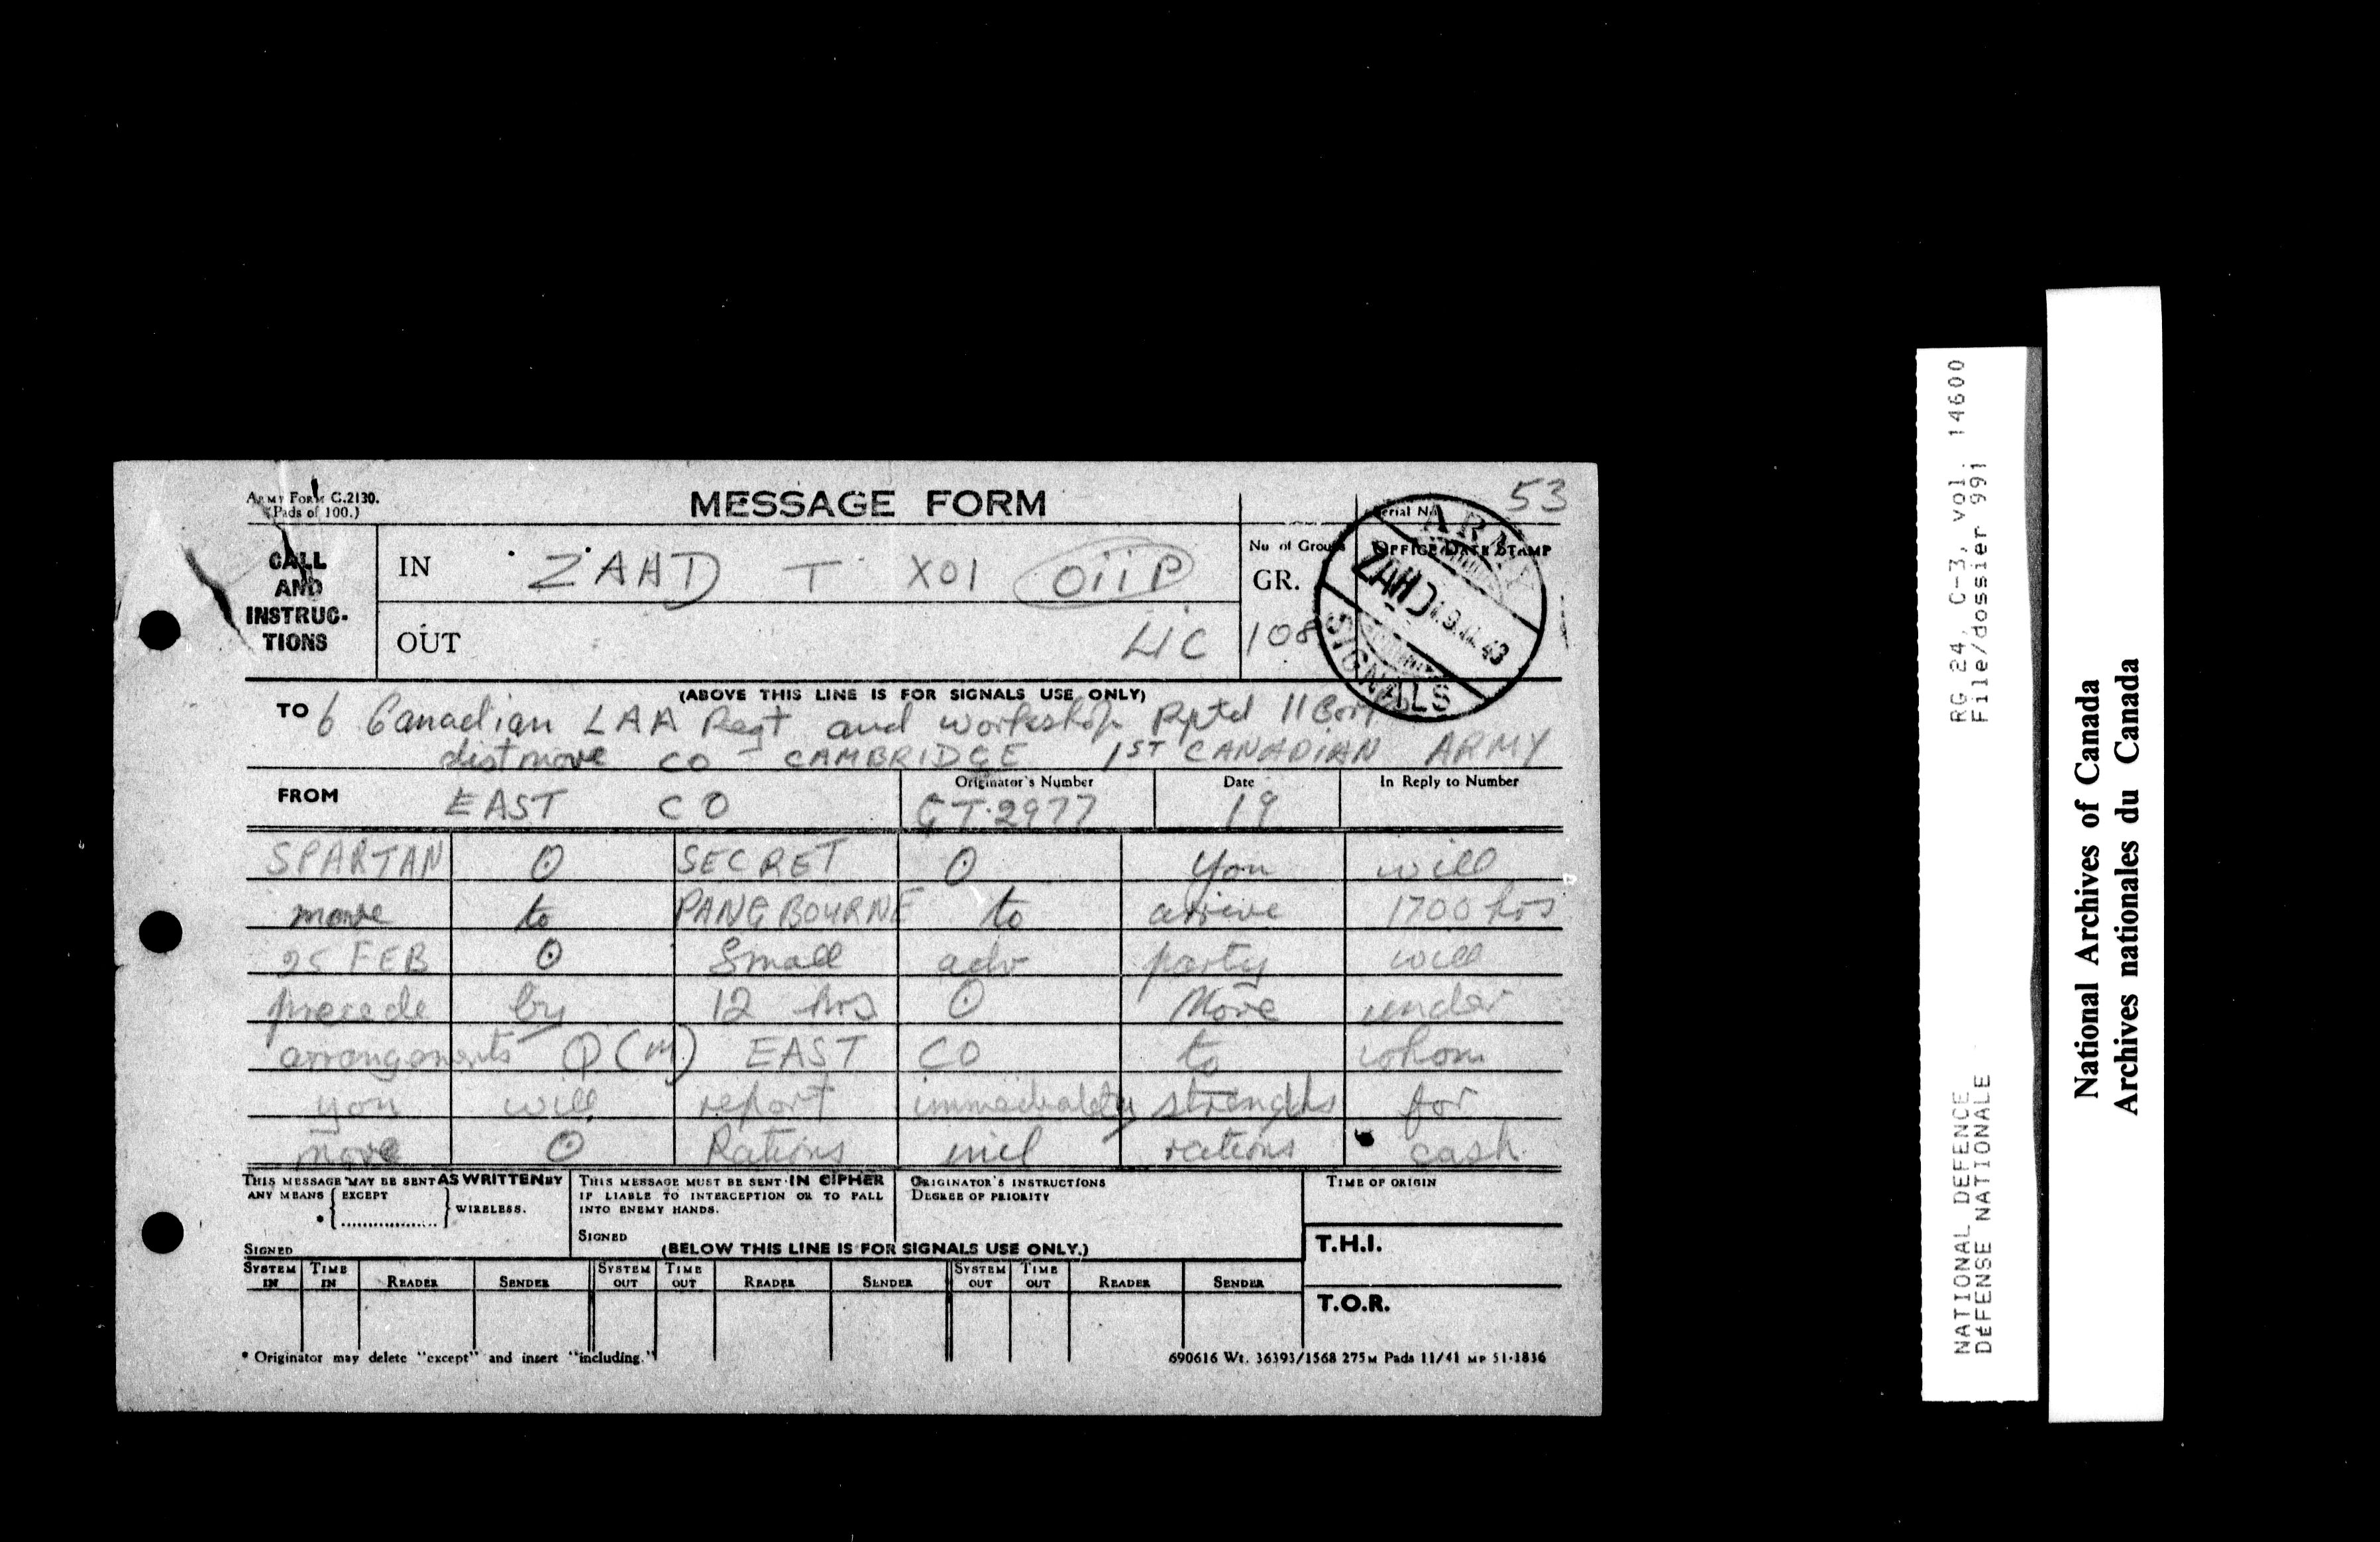 ARMY FORM C.2130.
(Pads of 100.)
MESSAGE FORM
Serial No.
53
CALL AND INSTRUC-TIONS
IN ZAHD T X01 OiiP
No of Groups
GR.
OFFICE DATE STAMP
OUT LIC 108
ARMY SIGNALS
ZAHD 19. 43
(ABOVE THIS LINE IS FOR SIGNALS USE ONLY)
TO 6 Canadian LAA Regt and workshop Rptd 11 Corps
distmove CO CAMBRIDGE 1ST CANADIAN ARMY
FROM EAST CO
Originator's Number GT.2977
Date 19
In Reply to Number
SPARTAN O SECRET O You will
move to PANGBOURNE to arrive 1700 hrs
25 FEB O Small adv party will
precede by 12 hrs O Move under
arrangements Q (M) EAST CO to whom
you will report immediately strengths for
move O Rations incl rations cash
THIS MESSAGE MAY BE SENT AS WRITTEN BY
ANY MEANS { EXCEPT
* { .................. } WIRELESS.
SIGNED
THIS MESSAGE MUST BE SENT IN CIPHER
IF LIABLE TO INTERCEPTION OR TO FALL
INTO ENEMY HANDS.
SIGNED
ORIGINATOR'S INSTRUCTIONS
DEGREE OF PRIORITY
TIME OF ORIGIN
(BELOW THIS LINE IS FOR SIGNALS USE ONLY.)
T.H.I.
SYSTEM IN TIME IN READER SENDER SYSTEM OUT TIME OUT READER SENDER SYSTEM OUT TIME OUT READER SENDER
T.O.R.
* Originator may delete "except" and insert "including."
690616 Wt. 36393/1568 275M Pads 11/41 MP 51-1836
RG 24, C-3, vol. 14600
File/dossier 991
NATIONAL DEFENCE
DÉFENSE NATIONALE
National Archives of Canada
Archives nationales du Canada